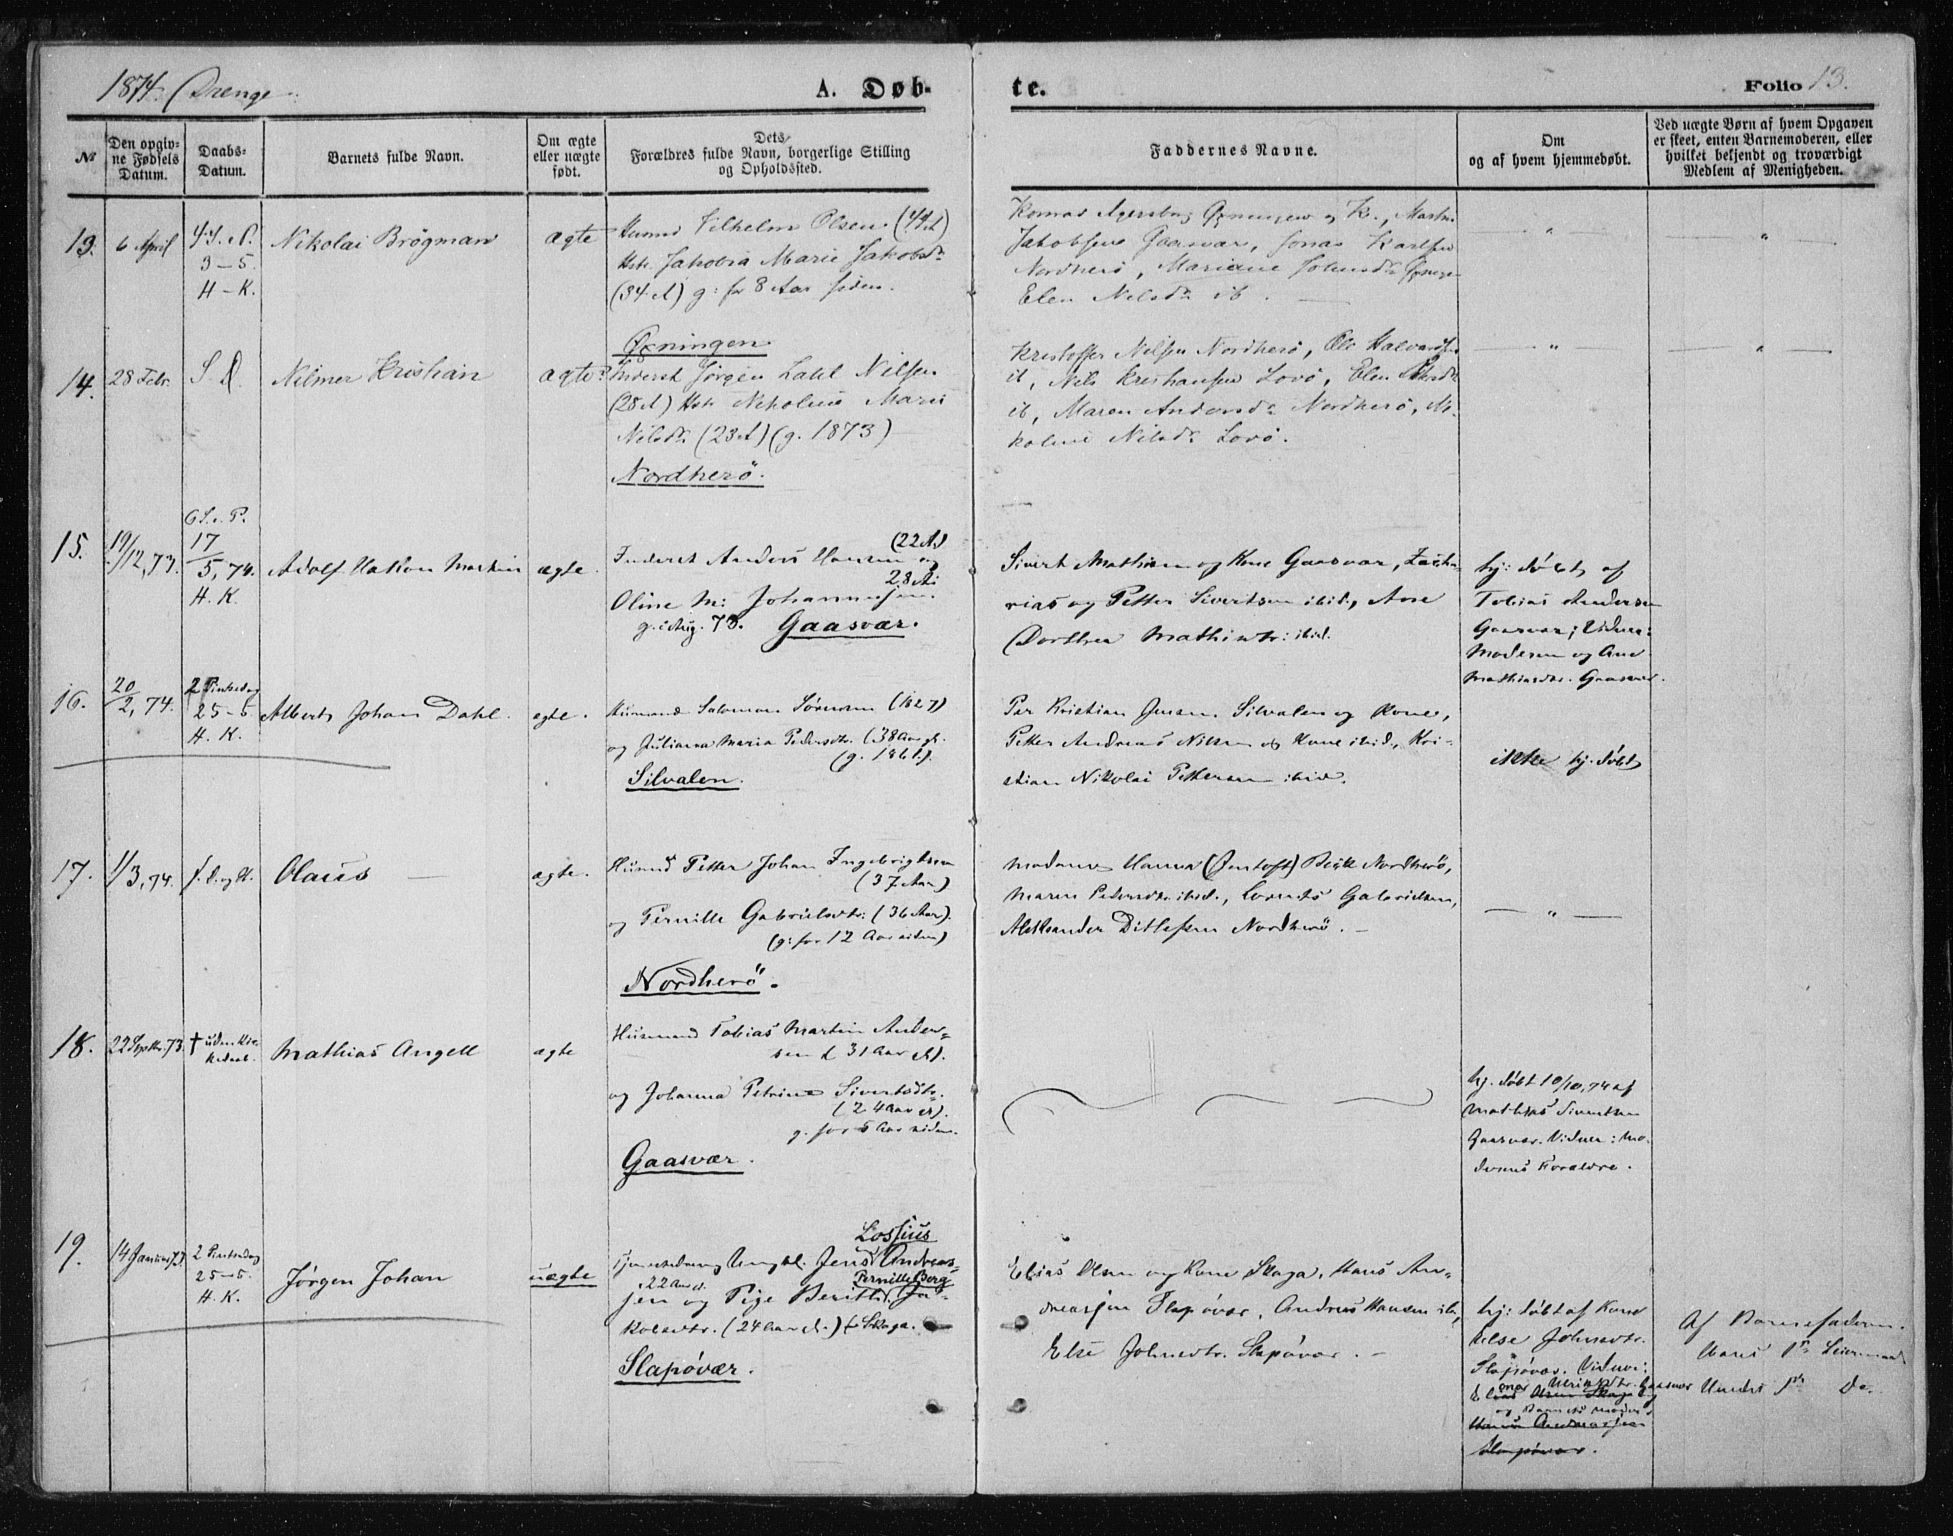 1874. Drenge
A. Døb-
te.
Folio 13.
No
Den opgiv-
ne Fødsels
Datum.
Daabs-
Datum.
Barnets fulde Navn.
Om ægte
eller uægte
født.
Dets
Forældres fulde Navn, borgerlige Stilling
og Opholdssted.
Faddernes Navne.
Om
og af hvem hjemmedøbt.
Ved uægte Børn af hvem Opgaven
er skeet, enten Barnemoderen, eller
hvilket bekjendt og troværdigt
Medlem af Menigheden.
13. 6 April
3-5.
H-K.
Nikolai Brögman
ægte
Vilhelm Olsen (44A)
Hstr. Jakobia Marie Jakobsdr
(34A) g: for 8 Aar siden.
Øxningen
Jakobsen Gaasvær, Jonas Karlsen
Nordherö, Mariane
Elen Nilsdr ib.
14. 28 Febr. S. D.
Nilmer Kristian
ægte
Inderst Jørgen Nilsen
(28A) Hstr Nikoline Marie
Nilsdr (23A) (g. 1873)
Nordherö.
Kristoffer Nilsen Nordherö, Ole Halvardsen
ib, Nils Kristiansen Lovö, Elen
ib, Maren Andersdr Nordherö, Ni-
koline Nilsdr Lovö.
15. 19/12,73.
6 S. e. P.
17/5,74.
H. K.
Adolf Hakon Martin
ægte.
Inderst Anders Hansen og (22A)
28 A
Oline M: Johannesen
g. i Aug. 73. Gaasvær.
Sivert Mathisen og Kone Gaasvær, Zacha-
rias og Petter Sivertsen ibid., Ane
Dorthea Mathisdtr: ibid.
hj: döbt af
Tobias Andersen
Gaasvær; Vidner:
Moderen og Ane
Mathiasdtr. Gaasvær.
16. 20/2,74.
2 Pintsedag
25-5.
H. K.
Albert Johan Dahl.
ægte.
Husmand Salomon Sörensen (1827)
og Julianna Maria Pedersdtr. (38 Aar gl.
(g. 1861).
Silvalen.
Per Kristian Jensen Silvalen og Kone,
Petter Andreas Nilsen og Kone ibid., Kri-
stian Nikolai Pettersen ibid.
ikke hj. döbt
17. 1/3,74.
Olaus
ægte.
Husmd Petter Johan Ingebrigtsen
(37 Aar)
og Pernille Gabrielsdtr. (36 Aar).
(g: for 12 Aar siden)
Nordherö.
Madame Hanna (Øntoft) Nordherö,
Maren Pedersdtr. ibid., Lorents Gabrielsen,
Aleksander Ditlefsen Nordherö.
18. 22 Septbr. 73.
† uden Kir-
kedaab.
Mathias Angell
ægte
Husmand Tobias Martin Ander-
sen (31 Aar A).
og Johanna Petrine Sivertsdtr.
(24 Aar A).
g. for 5 Aar siden.
Gaasvær.
hj. döbt 10/10,74 af
Mathias Sivertsen
Gaasvær. Vidner: Mo-
derens Forældre.
19. 14 Januar
2 Pintsedag
25-5.
H. K.
Jörgen Johan
uægte
Lossius
Tjenestedreng Ungkl. Jens Andreas-
22 Aar A. Pernille Berg
sen og Pige Berith Ja-
kobsdtr. (24 Aar A.) Skaga.
Slapövær.
Elias Olsen og Kone Skaga, Hans An-
dreassen Slapövær, Andreas Hansen ib.,
Else Johnsdtr. Slapövær.
hj: döbt af Kone
Else Johnsdtr.
Slapövær. Vidner:
Elias Olsen Skaga og
og Barnets Moder
Hans Andreassen
Slapövær.
Af Barnefaderen.